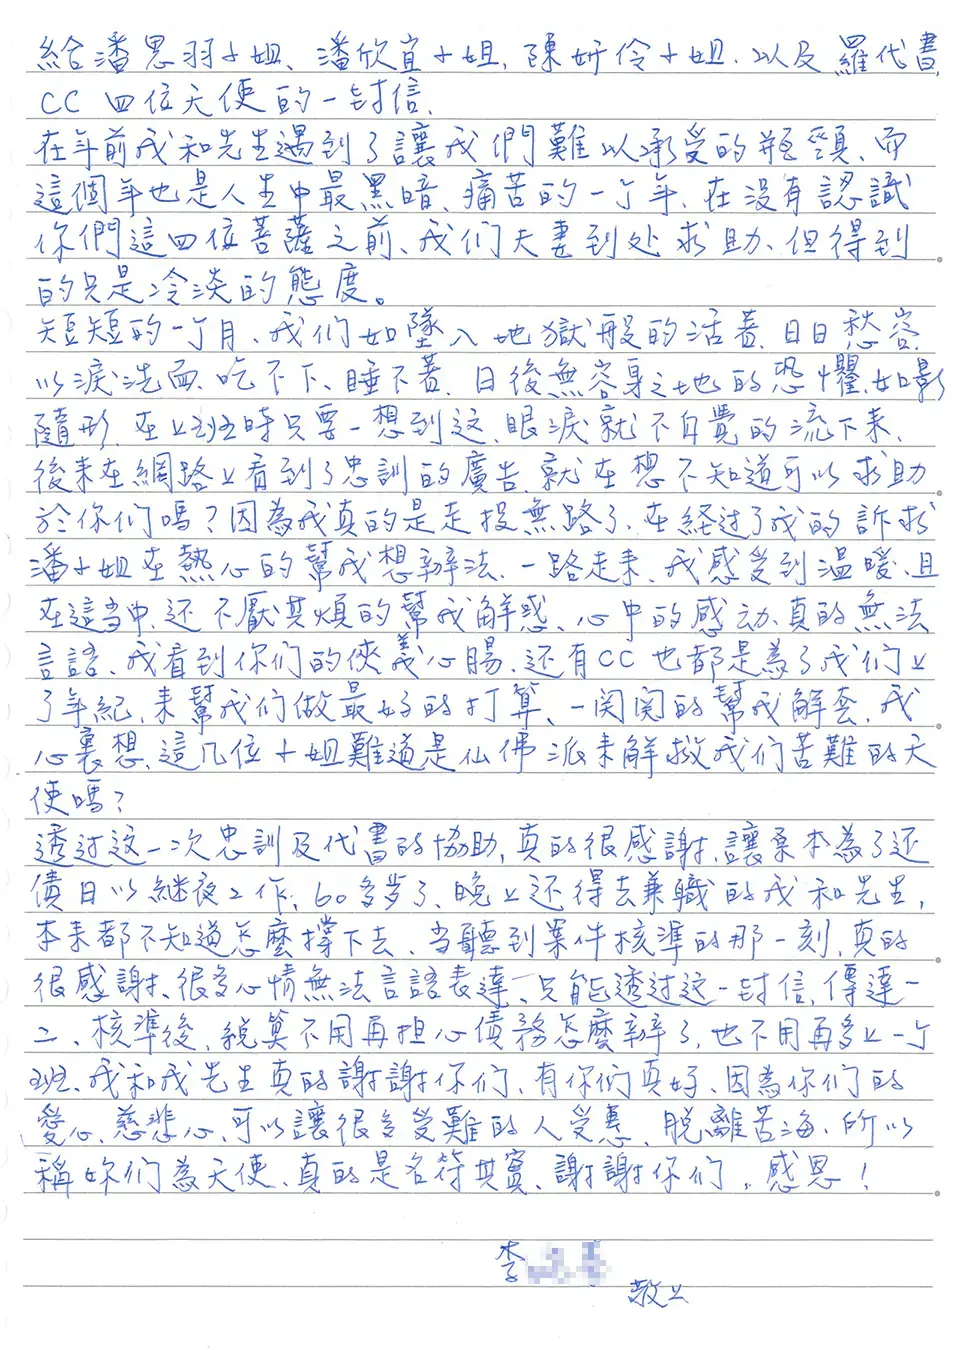 給潘思羽小姐、潘欣宜小姐、陳妍伶小姐、以及羅代書
CC 四位天使的一封信、
在年前我和先生遇到了讓我們難以承受的瓶頸、而
這個年也是人生中最黑暗、痛苦的一个年、在没有認識
你們這四位菩薩之前、我们夫妻到处求助、但得到
的只是冷淡的態度。
短短的一个月、我们如墜入地獄般的活著、日日愁容、
以淚洗面、吃不下、睡不著、日後無容身之地的恐懼、如影
隨形、在上班時只要一想到这、眼淚就不自覺的流下来、
後来在網路上看到了忠訓的廣告、就在想不知道可以求助
於你们嗎？因為我真的是走投無路了、在経过了我的訴求
潘小姐在熱心的幫我想辦法、一路走来、我感受到温暖、且
在這当中、还不厭其煩的幫我解惑、心中的感动、真的無法
言語、我看到你们的俠義心腸、还有CC也都是為了我们上
了年紀、来幫我们做最好的打算、一関関的幫我解套、我
心裏想、這几位小姐難道是仙佛派来解救我们苦難的天
使嗎？
透过这一次忠訓及代書的協助、真的很感謝、讓原本為了还
債日以継夜工作、60多岁了、晚上还得去兼職的我和先生，
本来都不知道怎麼撐下去、当聽到案件核準的那一刻、真的
很感謝、很多心情無法言語表達、只能透过这一封信、傳達一
二、核準後、総算不用再担心債務怎麼辦了，也不用再多上一个
班、我和我先生真的謝謝你们、有你们真好、因為你们的
愛心、慈悲心、可以讓很多受難的人受惠、脱離苦海、所以
稱妳们為天使、真的是名符其實、謝謝你们。感恩！
李
敬上